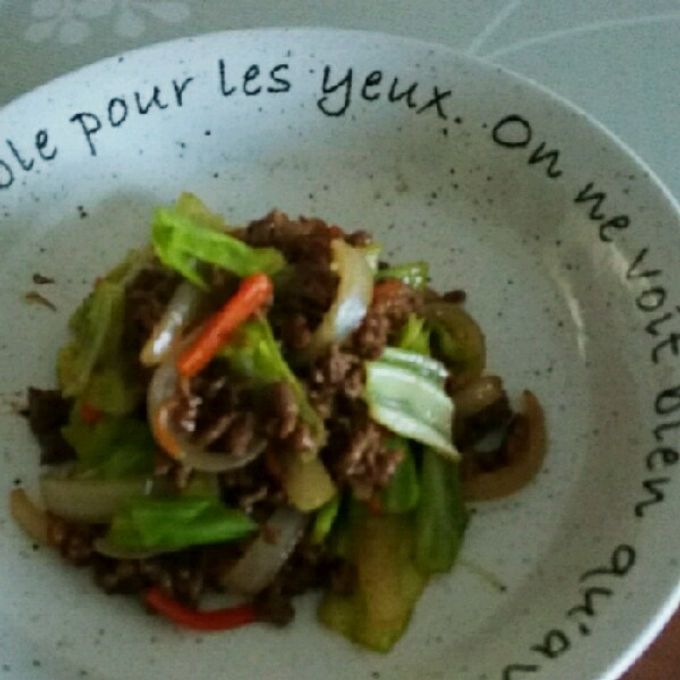 ble pour les yeux. On ne voit bien qu'au